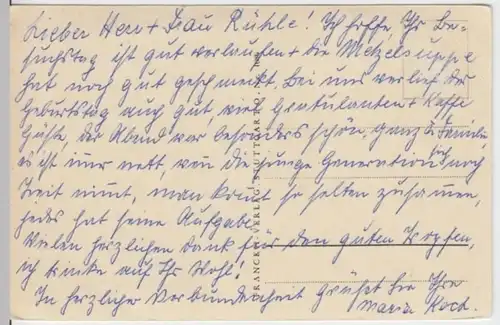 Lieber Herr + Frau Rühle! Ich hoffe, Ihr Be-
suchstag ist gut verlaufen + die Metzelsuppe
hat noch gut geschmeckt. Bei uns verlief der
Geburtstag auch gut, viele Gratulanten + Kaffe
Gäste, der Abend war besonders schön, ganz die Familie,
es ist immer nett, wenn die junge Generation sich noch
Zeit nimmt, man kommt so selten zusammen,
jedes hat seine Aufgabe.
Vielen herzlichen Dank für den guten Tropfen,
ich trinke auf Ihr Wohl!
In herzlicher Verbundenheit grüßt Sie Ihre
Maria Koch.
FRANCKH VERLAG STUTTGART